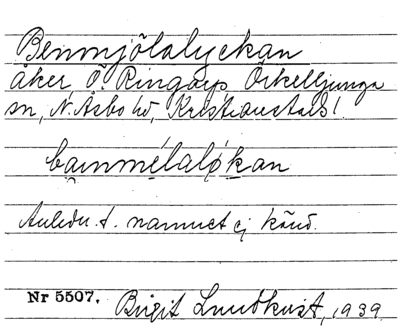 Benmjölslyckan
åker, Ö. Ringarp, Örkelljunga
sn, N. Åsbo hd, Kristianstads l.
bainmélaløkan
Anledn. t. namnet ej känd.
Nr 5507. Birgit Lundkvist, 1939.